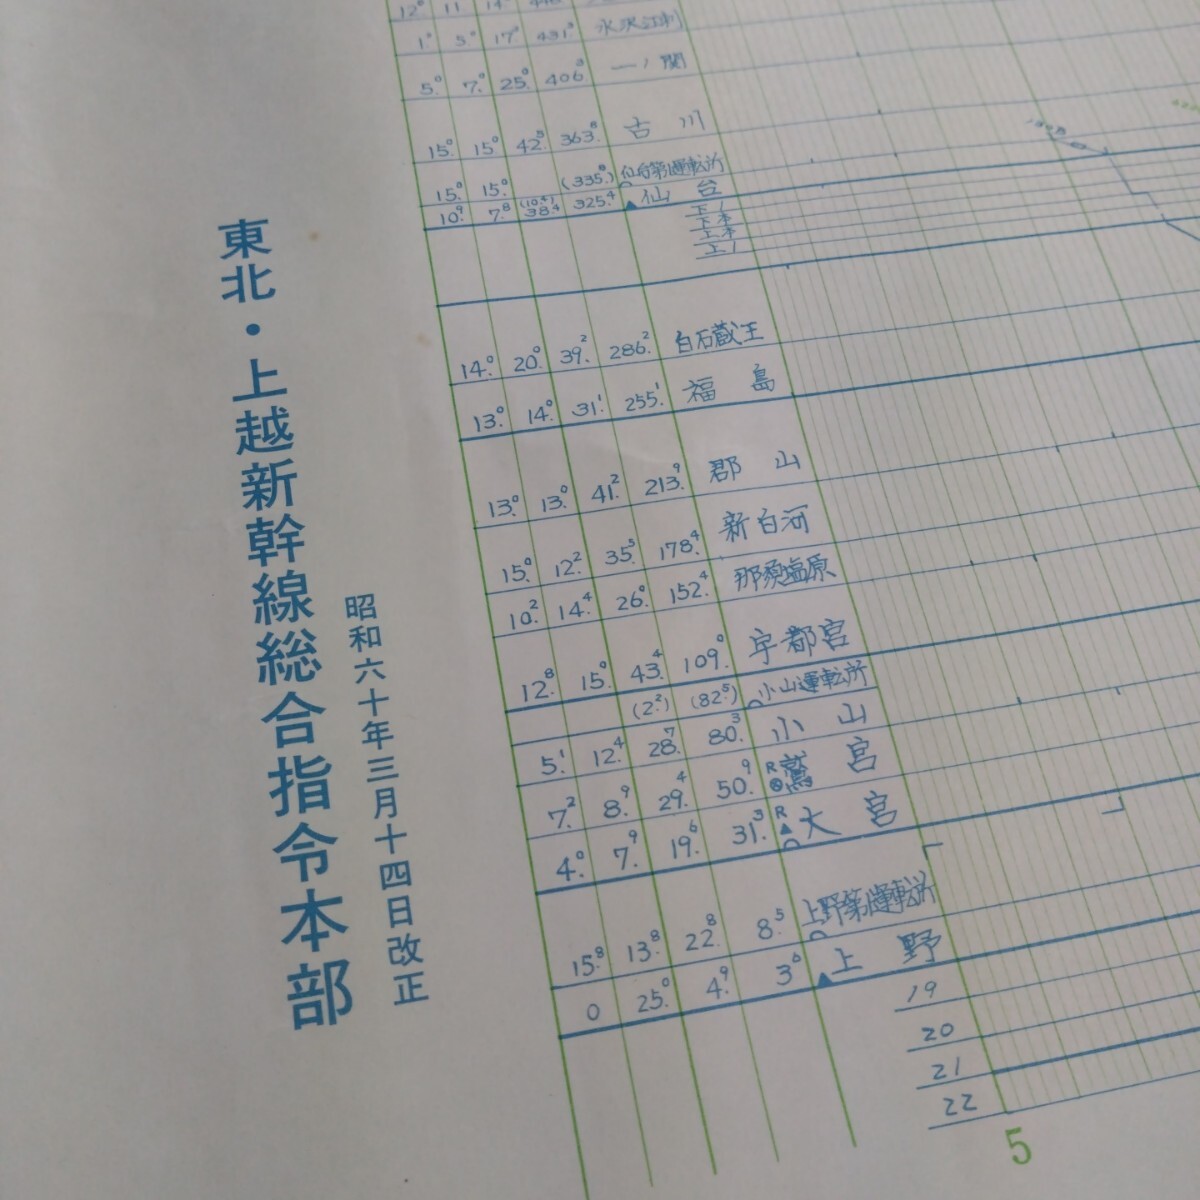 東北・上越新幹線総合指令本部
昭和六十年三月十四日改正
1⁰ 5⁰ 17⁰ 431³ 水沢江刺
5.⁰ 7.⁰ 25.⁰ 406.³ 一ノ関
15.⁰ 15.⁰ 42.⁵ 363.⁸ 古川
15.⁰ 15.⁰ (335.⁸) 仙台第1運転所
10.⁹ 7.⁸ (10.4) 38.4 325.⁴ ▲仙台
下1
下本
上本
上1
14.⁰ 20.⁰ 39.² 286.² 白石蔵王
13.⁰ 14.⁰ 31.¹ 255.¹ 福島
13.⁰ 13.⁰ 41.² 213.⁹ 郡山
15.⁰ 12.² 35.⁵ 178.⁴ 新白河
10.² 14.⁴ 26.⁰ 152.⁴ 那須塩原
12.⁸ 15.⁰ 43.⁴ 109.⁰ 宇都宮
(2.²) (82.⁵) 小山運転所
5.¹ 12.⁴ 28.⁷ 80.³ 小山
7.² 8.⁹ 29.⁴ 50.⁹ R 鷲宮
4.⁰ 7.⁹ 19.⁶ 31.³ R ▲大宮
15.⁸ 13.⁸ 22.⁸ 8.⁵ 上野第1運転所
0 25.⁰ 4.⁹ 3.⁶ ▲上野
19
20
21
22
5